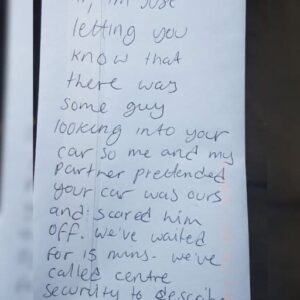 Hi, im just
letting you
know that
there was
some guy
looking into your
car so me and my
partner pretended
your car was ours
and scared him
off. we've waited
for 15 mins. we've
called centre
security to describe